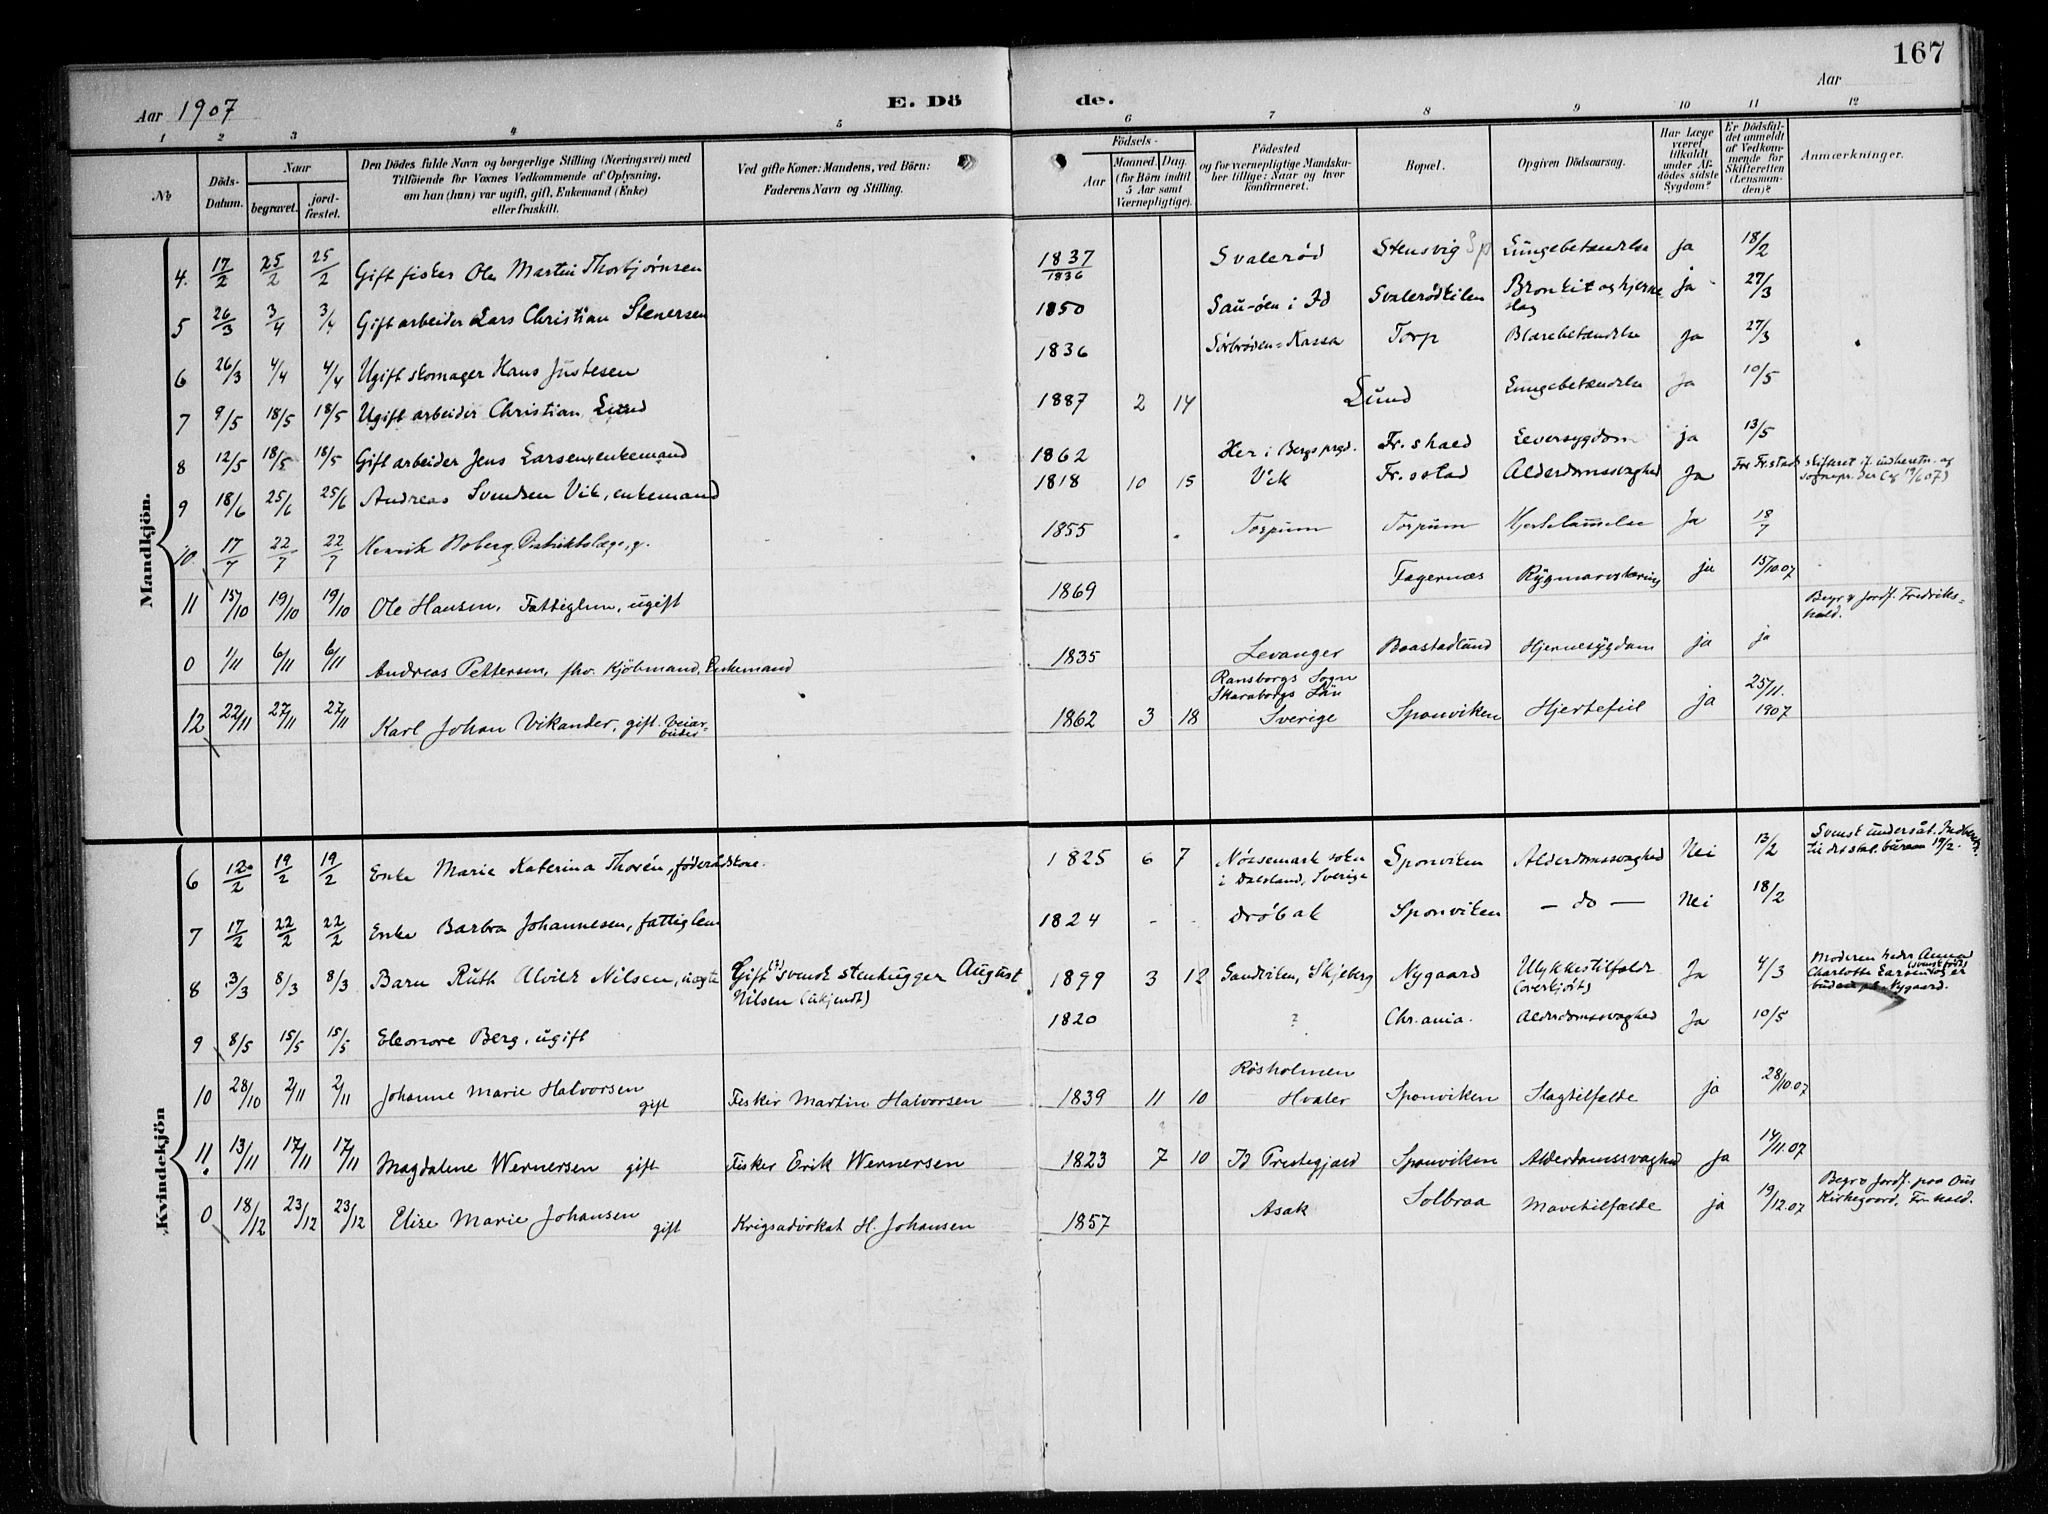 167
Aar 1907
E. Dö
de.
Aar
1 2 3 4 5 6 7 8 9 10 11 12
No
Döds-
Datum.
Naar
begravet.
jord-
fæstet.
Den Dödes fulde Navn og borgerlige Stilling (Næringsvei) med
Tilföiende for Voxnes Vedkommende af Oplysning,
om han (hun) var ugift, gift, Enkemand (Enke)
eller fraskilt.
Ved gifte Koner: Mandens, ved Börn:
Faderens Navn og Stilling.
Födsels-
Aar
Maaned. Dag.
(for Börn indtil
5 Aar samt
Værnepligtige).
Födested
og for værnepligtige Mandska-
ber tillige: Naar og hvor
konfirmeret.
Bopæl.
Opgiven Dödsaarsag.
Har Læge
været
tilkaldt
under Af-
dödes sidste
Sygdom?
Er Dödsfal-
det anmeldt
af Vedkom-
mende for
Skifteretten
(Lensman-
den)?
Anmærkninger.
Mandkjön.
4. 17/2 25/2 25/2 Gift fisker Ole Martin Thorbjørnsen 1837 1836 Svalerød Stensvig Sp Lungebetændelse ja 18/2
5 26/3 3/4 3/4 Gift arbeider Lars Christian Stenersen 1850 Sau-øen i Id Svalerødkilen Bronkit og hjerne
slag ja 27/3
6 26/3 4/4 4/4 Ugift skomager Hans Justesen 1836 Sørbrøden=Kassa Torp Blærebetændelse ja 27/3
7 9/5 18/5 18/5 Ugift arbeider Christian Lund 1887 2 14 Lund Lungebetændelse Ja 10/5
8 12/5 18/5 18/5 Gift arbeider Jens Larsen, enkemand 1862 Her i Bergs prgd. Fr.shald Leversygdom ja 13/5
9 18/6 25/6 25/6 Andreas Svendsen Vik, enkemand 1818 10 15 Vik Fr.sstad Alderdomssvaghed Ja
10 17/7 22/7 22/7 Henrik Boberg, Distriktslæge, g. 1855 Torpum Torpum Hjertelammelse Ja 18/7
11 15/10 19/10 19/10 Ole Hansen, Fattiglem, ugift 1869 Fagernæs Rygmarvstæring ja 15/10.07 Begr. & Jordf. Fredriks=
hald.
0 1/11 6/11 6/11 Andreas Pettersen, fhv. Kjøbmand, Enkemand 1835 Levanger Baastadlund Hjernesygdom ja ja
12 22/11 27/11 27/11 Karl Johan Vikander, gift. Veiar-
beider 1862 3 18 Ransborgs Sogn
Skaraborgs Län
Sverige Sponviken Hjertefeil ja 25/11.
1907
Kvindekjön
6 12/2 19/2 19/2 Enke Marie Katerina Thorén, føderådskone. 1825 6 7 Nössemark sokn
i Dalsland, Sverige Sponviken Alderdomssvaghed Nei 13/2 Svensk undersåt. Indberet
til det stat. bureau 19/2.
7 17/2 22/2 22/2 Enke Barbra Johannesen, fattiglem 1824 - - Drøbak Sponviken — do — Nei 18/2
8 3/3 8/3 8/3 Barn Ruth Alvilk Nilsen, uægte Gift (?) svensk stenhugger August
Nilsen (ukjendt) 1899 3 12 Sandviken, Skjeberg Nygaard Ulykkestilfælde
(overkjørt) Ja 4/3 Moderen heder Anna
Charlotta (svensk født) er
Nygaard.
9 8/5 15/5 15/5 Eleonore Berg, ugift 1820 ? Chr.ania. Alderdomssvaghed Ja 10/5
10 28/10 2/11 2/11 Johanne Marie Halvorsen
gift Fisker Martin Halvorsen 1839 11 10 Røsholmen
Hvaler Sponviken Slagtilfælde ja 28/10.07
11. 13/11 17/11 17/11 Magdalene Wernersen gift Fisker Erik Wernersen 1823 7 10 Id Prestegjæld Sponviken Alderdomssvaghed ja 14/11.07
0 18/12 23/12 23/12 Elise Marie Johansen
gift Krigsadvokat H. Johansen 1857 Asak Solbraa Mavetilfælde ja 19/12.07 Begr & Jordf. paa Ous
Kirkegaard, Fr.hald.